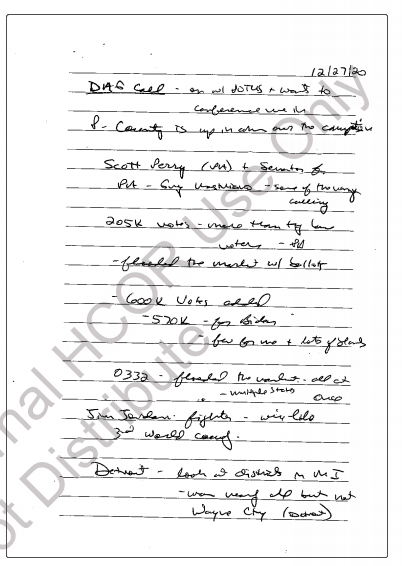 12/27/20
DAG Call - on w/ POTUS + wants to
conference me in
P - Country is up in arms over the corruption
Scott Perry (PA) + Senator fr
PA - Guy - some of the
calling
205K votes - more than they have
voters - PA
- flooded the market w/ ballots
- 600K Votes added
- 570K - for Biden
- few for me + lots of
0332 - flooded the market - all at
- multiple States once
Jim Jordan: fighter -
3rd world
Detroit - look at districts in MI
- won nearly all but not
Wayne Cty (Detroit)
nal HCOR Use Only
ot Distribute